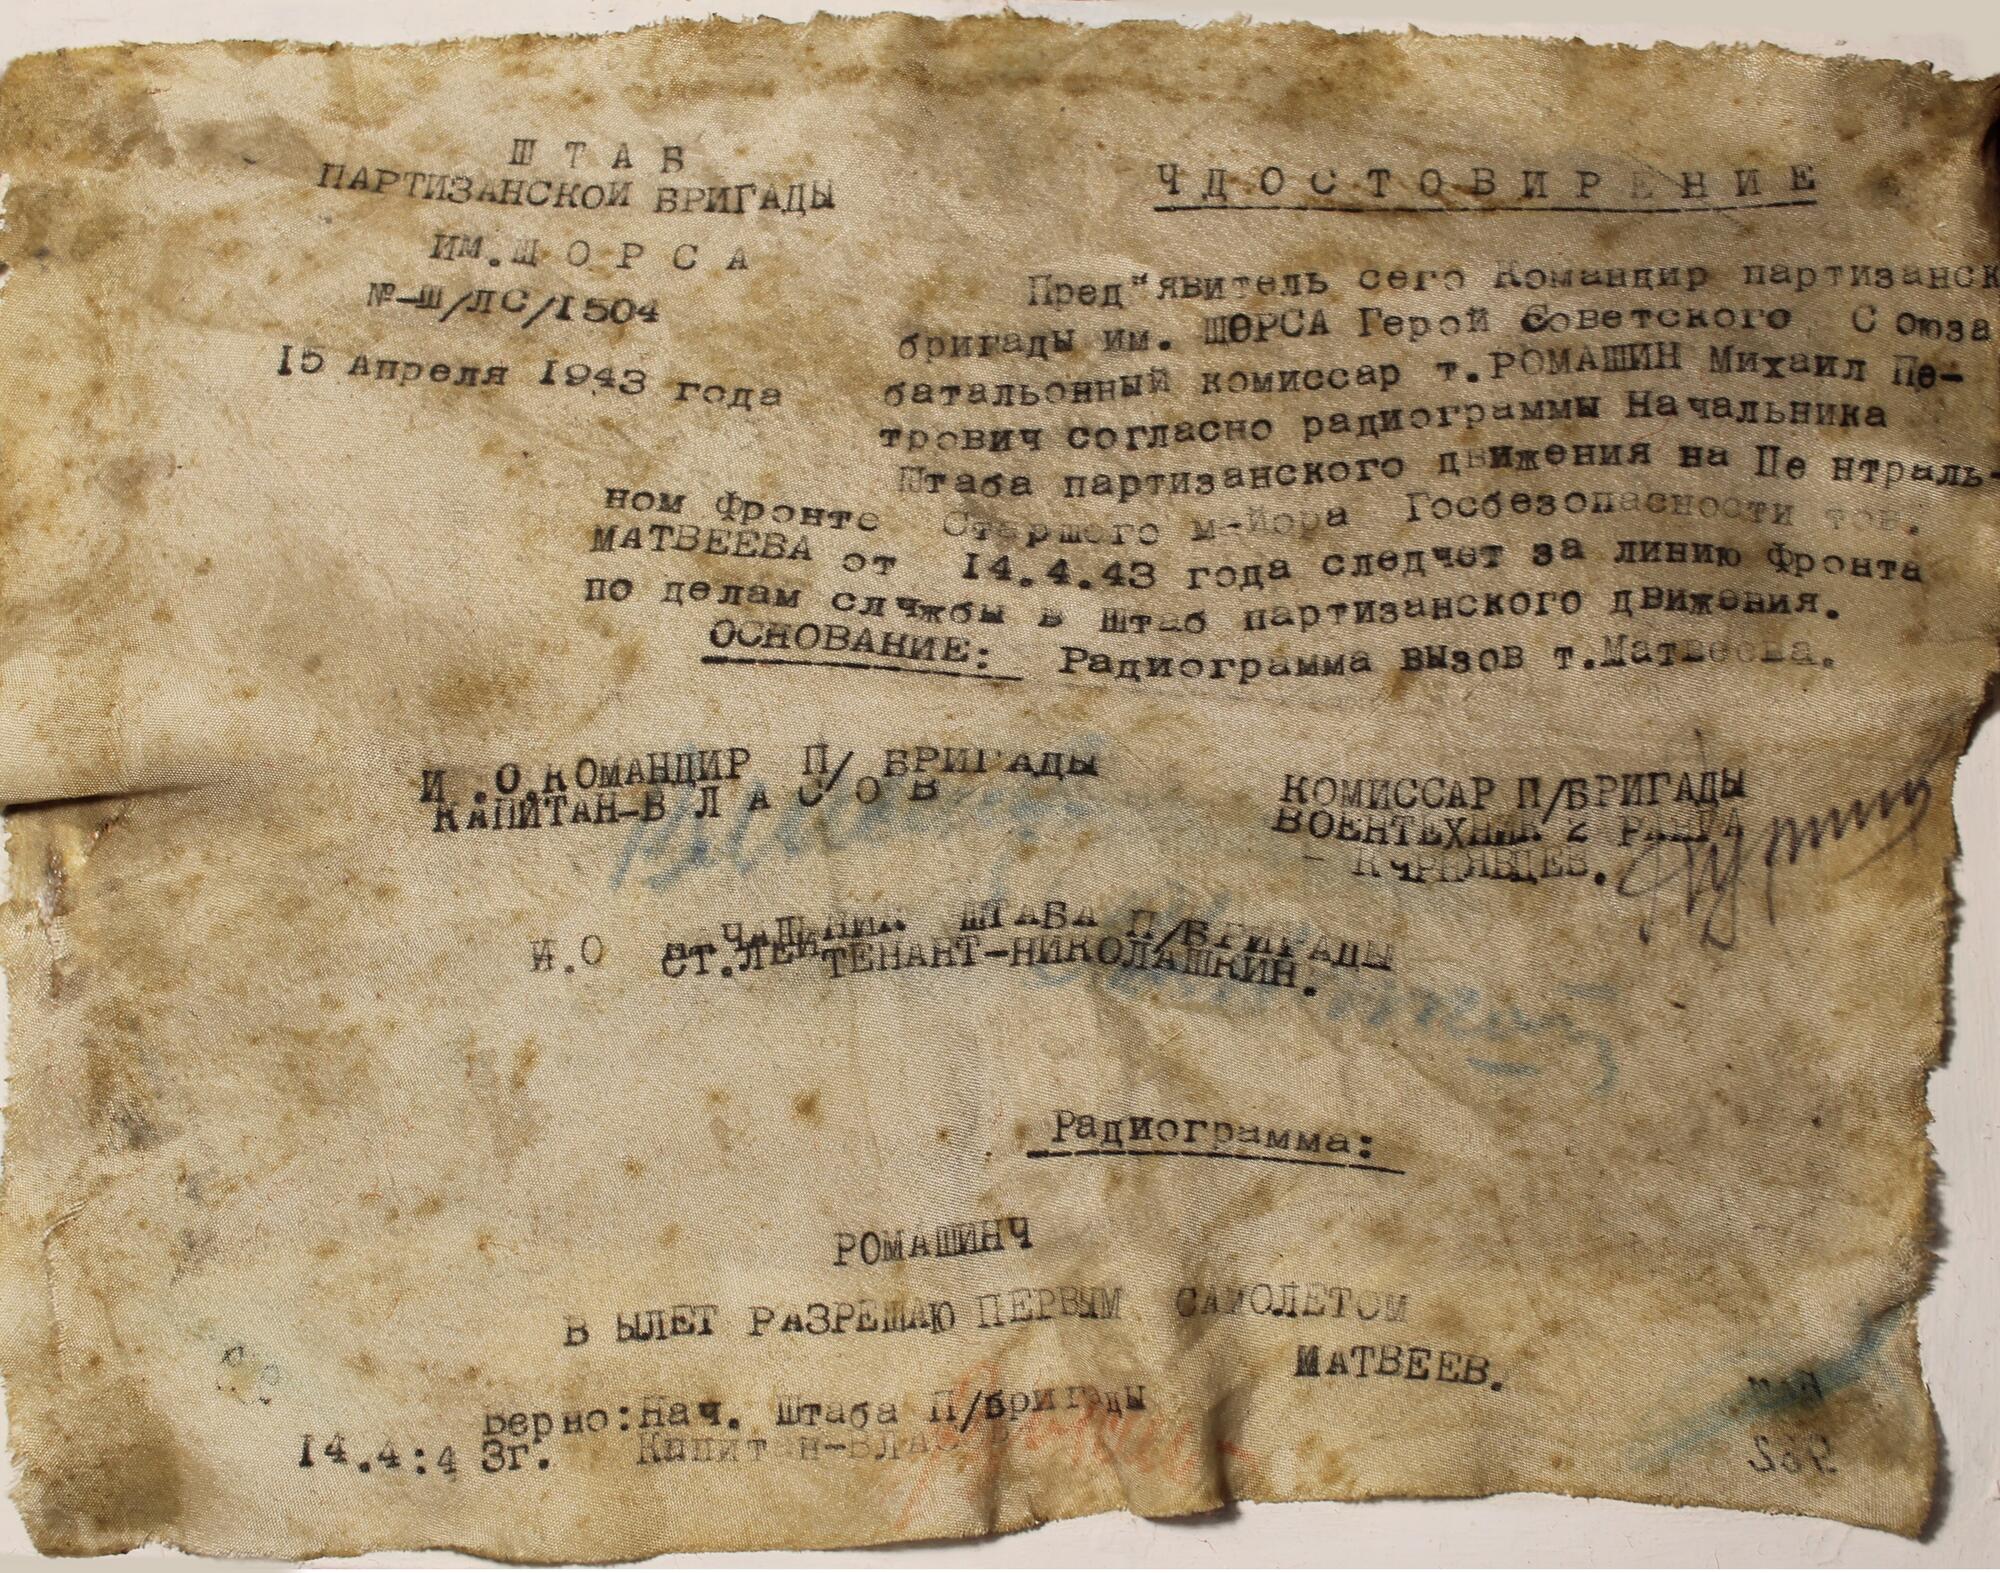 Ш Т А Б
ПАРТИЗАНСКОЙ БРИГАДЫ
ИМ.Ш О Р С А
№-Ш/ЛС/I504
I5 Апреля I943 года
Ч Д О С Т О В И Р Е Н И Е
Пред"явитель сего Командир партизанск
бригады им. ШОРСА Герой Советского С оюза
батальонный комиссар т.РОМАШИН Михаил Пе-
трович согласно радиограммы Начальника
Штаба партизанского движения на Це нтраль-
ном фронте Старшего м-йора Госбезопасности тов.
МАТВЕЕВА от I4.4.43 года следчет за линию фронта
по делам слчжбы в Штаб партизанского движения.
ОСНОВАНИЕ: Радиограмма вызов т.Матвеева.
И .О.КОМАНДИР П/ БРИГАДЫ
КАПИТАН-В Л А С О В
КОМИССАР П/БРИГАДЫ
ВОЕНТЕХНИК 2 РАНГА
- КЧРНЯВЦЕВ.
И.О НАЧАЛЬНИК ШТАБА П/БРИГАДЫ
СТ.ЛЕЙТЕНАНТ-НИКОЛАШКИН.
Радиограмма:
РОМАШИНЧ
В ЫЛЕТ РАЗРЕШАЮ ПЕРВЫМ САМОЛЕТОМ
МАТВЕЕВ.
Верно:Нач. Штаба П/бригады
I4.4:4 3г. Капит н-ВЛАСОВ